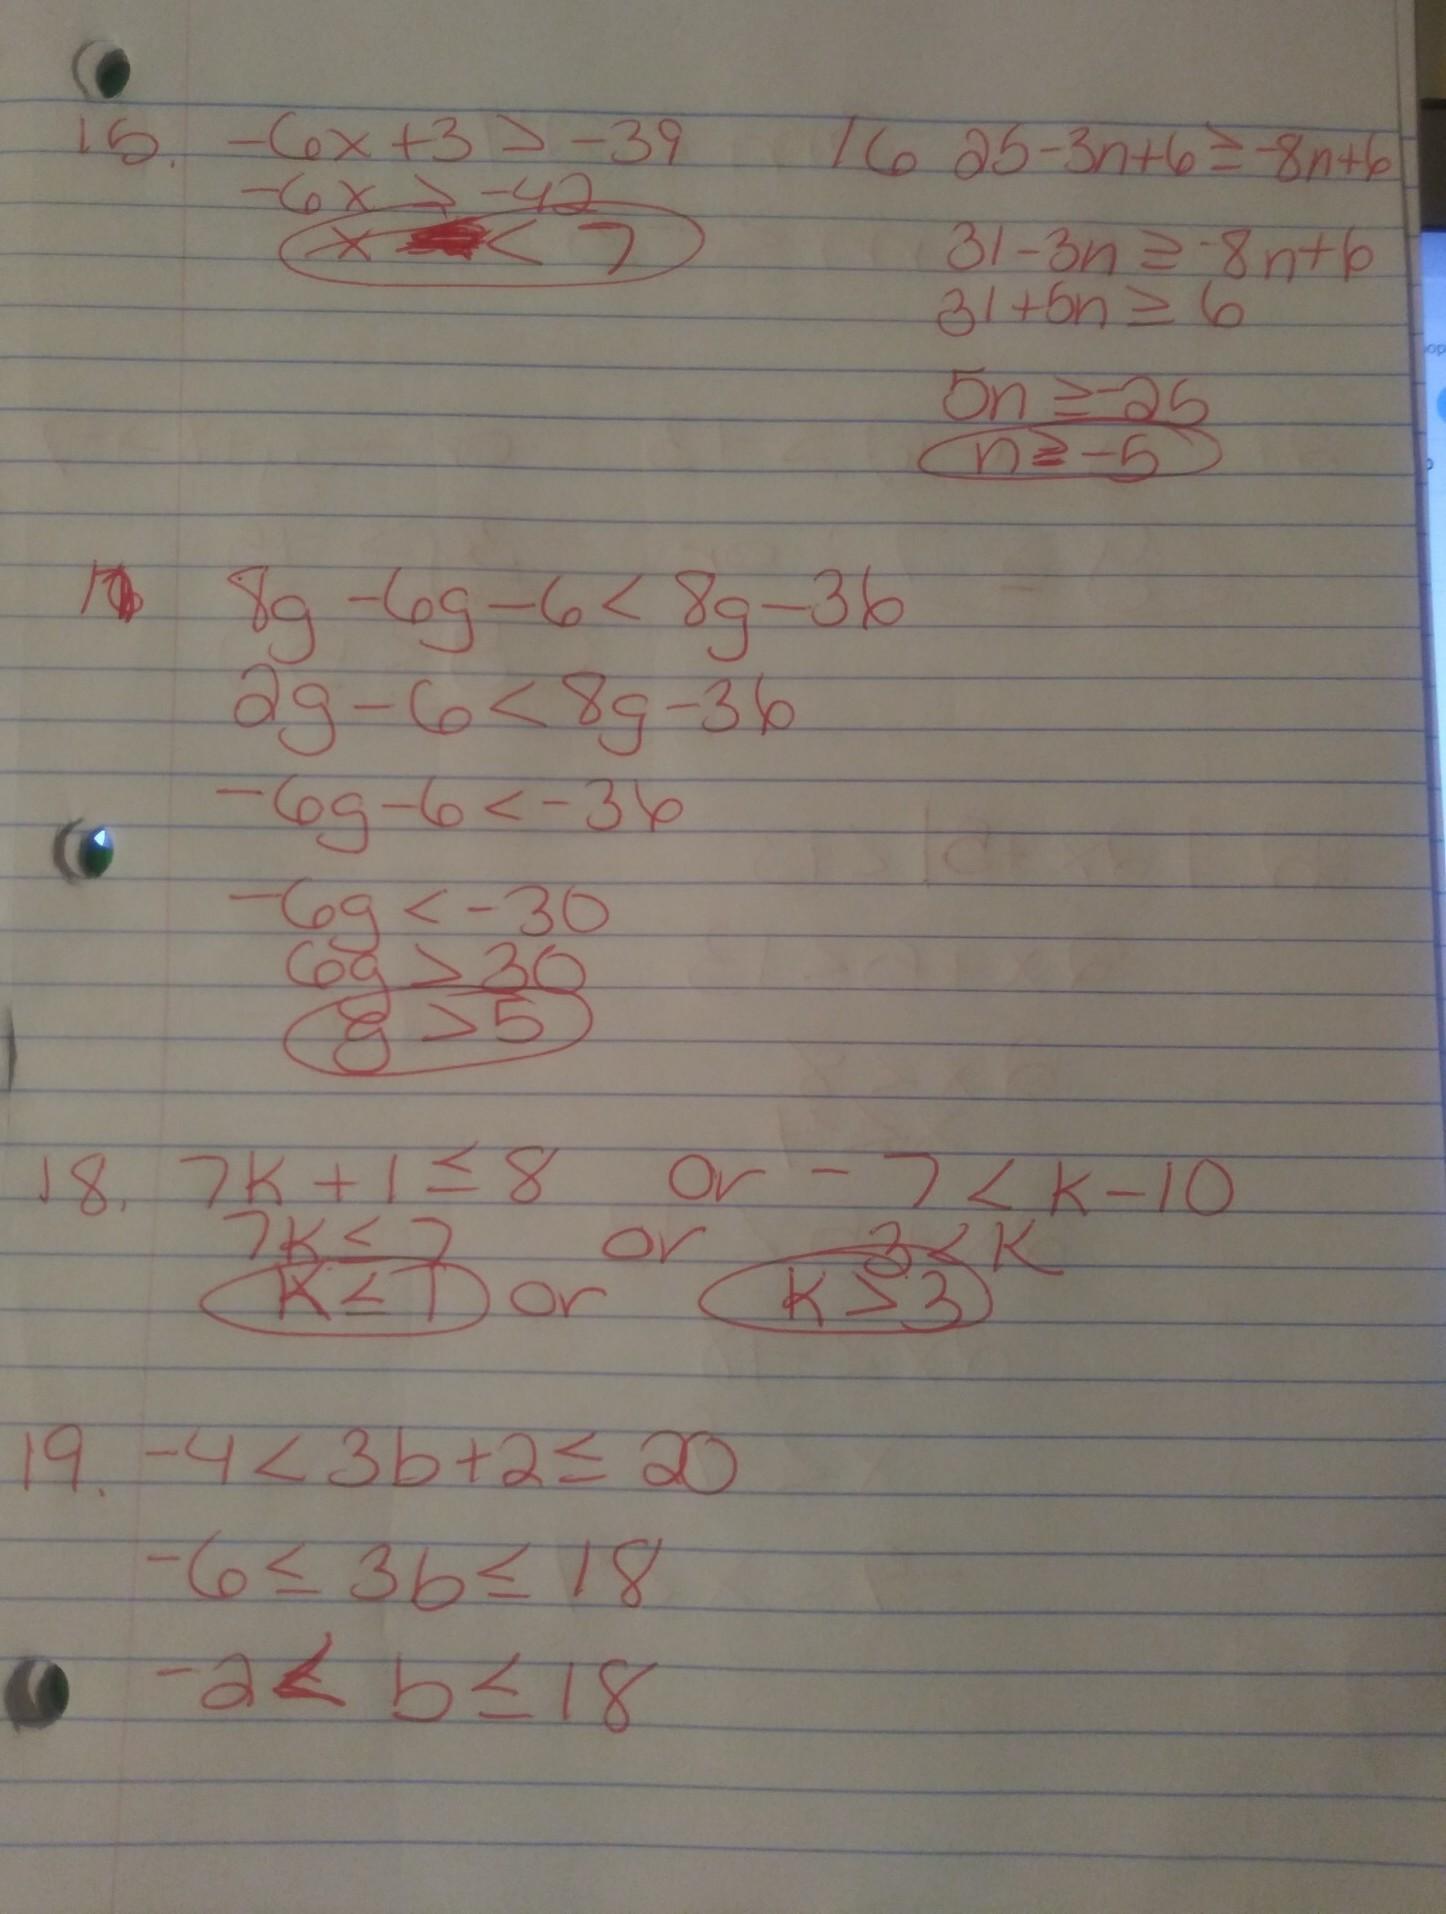 15. -6x+3 > -39
-6x > -42
x < 7
16 25-3n+6 ≥ -8n+6
31-3n ≥ -8n+6
31+5n ≥ 6
5n ≥ -25
n ≥ -5
8g -6g -6 < 8g -36
2g -6 < 8g -36
-6g -6 < -36
-6g < -30
6g > 30
g > 5
18. 7K+1 ≤ 8 or -7 < K-10
7K ≤ 7 or 3 < K
K ≤ 1 or K > 3
19. -4 < 3b+2 ≤ 20
-6 ≤ 3b ≤ 18
-2 < b ≤ 18